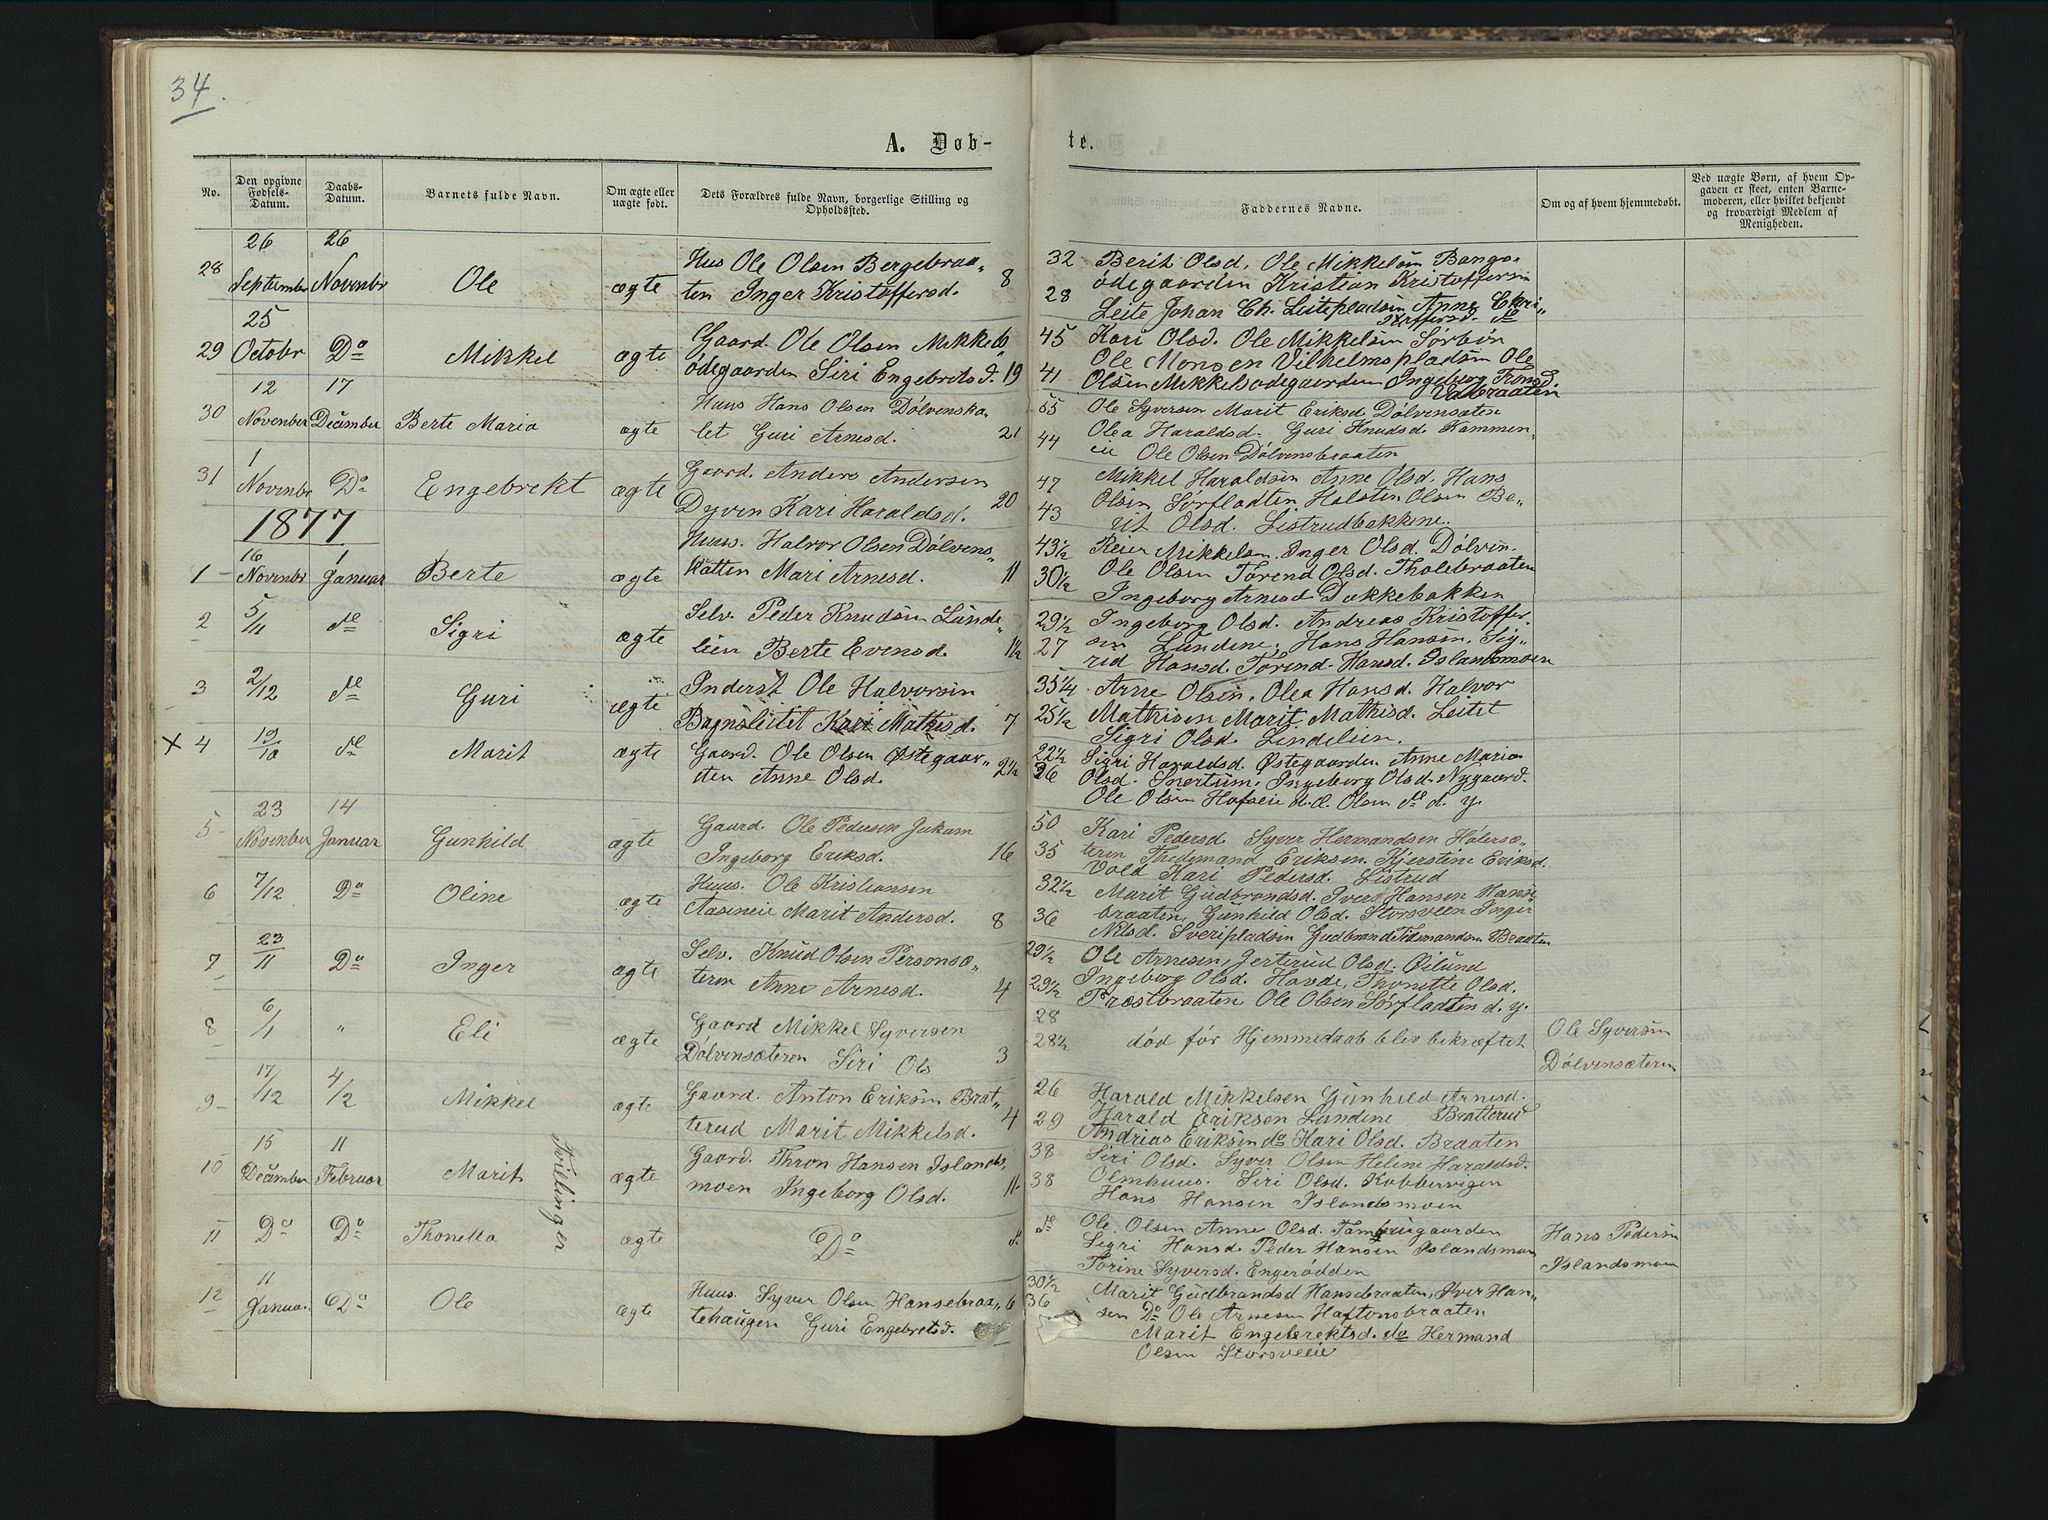 34.
A. Døb-
te.
No.
Den opgivne Fødsels-Datum.
Daabs-Datum.
Barnets fulde Navn.
Om ægte eller uægte født.
Dets Forældres fulde Navn, borgerlige Stilling og Opholdssted.
Faddernes Navne.
Om og af hvem hjemmedøbt.
Ved uægte Børn, af hvem Opgaven er skeet, enten Barnemoderen, eller hvilket bekjendt og troværdigt Medlem af Menigheden.
26 26
28 September Novenbr Ole ægte
Hus Ole Olsen Bergebraa-
ten Inger Kristoffersd. 8
32 Berit Olsd. Ole Mikkelsen Bangs-
ødegaarden Kristian Kristoffersen
28 Leite Johan Ch. Leitepladsen Anne Chri-
stoffersd. de
25
29 Octobr Do Mikkel ægte
Gaard Ole Olsen Mikkels
ødegaarden Siri Engebretsd. 19
45 Kari Olsd. Ole Mikkelsen Sørbøn
Ole Monsen Vilhelmspladsen Ole
41 Olsen Mikkelsødegaarden Ingeborg Tronsd.
Valbraaten
12 17
30 November December Berte Maria ægte
Huus Hans Olsen Dølvenska
let Guri Arnesd. 21
55 Ole Syversen Marit Eriksd Dølvensæten
44 Olea Haraldsd. Guri Knudsd. Kammen-
eie Ole Olsen Dølvensbraaten
1
31 Novenbr Do Engebrekt ægte
Gaard. Anders Andersen
Dyven Kari Haraldsd. 20
47 Mikkel Haraldsen Anne Olsd. Hans
43 Olsen Sørfladten Halsten Olsen Be-
rit Olsd. Listrudbakkene.
1877
16 1
1 Novenbr Januar Berte ægte
Huus. Halvor Olsen Dølvens-
hatten Mari Arnesd. 11
43½ Reier Mikkelsen. Inger Olsd. Dølven
30½ Ole Olsen Torend Olsd. Tholebraaten
Ingeborg Arnesd Dokkebakken
2 5/11 de Sigri ægte
Selv. Peder Knudsen Lunde-
lien Berte Evensd. 1½
29½ Ingeborg Olsd. Andreas Kristoffer-
27 sen Lundene, Hans Hansen, Sig-
rid Hansd. Torend Hansd. Islandsmoen
3 2/12 de Guri ægte
Inderst Ole Halvorsen
Bagnsleitet Kari Mathisd. 7
35¼ Arne Olsen, Olea Hansd. Halvor
25½ Mathisen Marit Mathisd. Leitet
Sigri Olsd. Lindelien.
X 4 19/10 de Marit ægte
Gaard. Ole Olsen Østegaar-
den Anne Olsd. 2½
22½ Sigri Haraldsd. Østegaarden Anne Maria
26 Olsd. Snertum, Ingeborg Olsd. Nygaard.
Ole Olsen Hofseie d.æ. Olsen de d. y.
23 14
5 November Januar Gunhild ægte
Gaard. Ole Pedersen Jukam
Ingeborg Eriksd. 16
50 Kari Pedersd. Syver Hermandsen Hølersæ-
35 teren Thedemand Eriksen. Kjerstine Eriksd.
Vold Kari Pedersd. Listrud
6 7/12 Do Oline ægte
Huus. Ole Kristiansen
Aaseneie Marit Andersd. 8
32½ Marit Gudbrandsd. Iver Hansen Hanse-
36 braaten, Gunhild Olsd. Storsveen Inger
Nilsd. Sveripladsen Gudbrand Braaten
7 23/11 Do Inger ægte
Selv. Knud Olsen Personsæ-
teren Anne Arnesd. 4
29½ Ole Arnesen, Jertrud Olsd. Øilund
29½ Ingeborg Olsd. Havde, Thonette Olsd.
Præstbraaten Ole Olsen Sørfladten d. y.
8 6/1 " Eli ægte
Gaard Mikkel Syversen
Dølvensæteren Siri Ols 3
28
28½ død før Hjemmedaab blev bekræftet
Ole Syversen
Dølvensæteren
9 17/12 4/2 Mikkel ægte
Gaard. Anton Eriksen Brat-
terud Marit Mikkelsd. 4
26 Harald Mikkelsen Gunhild Arnesd.
29 Harald Eriksen Lundene Bratterud
Andrias Eriksen do Kari Olsd. Braaten
15 11
10 December Februar Marit ægte
Tvillinger
Gaard. Thron Hansen Islands
moen Ingeborg Olsd. 11
38 Siri Olsd. Syver Olsen Helene Haraldsd.
38 Olmhuus. Siri Olsd. Kobbervigen
Hans Hansen Islandsmoen
11 Do Do Thonetta ægte Do d.
de Ole Olsen Anne Olsd.
Sigri Hansd. Peder Hansen Islandsmoen
Torine Syversd. Engerødden
Hans Pedersen
Islandsmoen
11
12 Januar Do Ole ægte
Huus. Syver Olsen Hansebraa-
tehaugen Guri Engebretsd. 6
30½ Marit Gudbrandsd Hansebraaten, Iver Han-
36 sen Do Ole Arnesen Haftonsbraaten
Marit Engebrektsd. do Hermand
Olsen Storsveeie